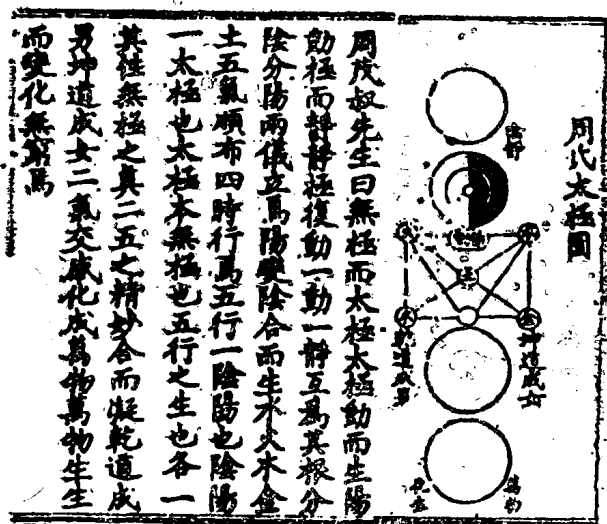 周氏太極圖
陰靜
坤道成女
乾道成男
周茂叔先生曰無極而太極太極動而生陽
動極而靜靜極復動一動一靜互爲其根分
陰分陽兩儀立焉陽變陰合而生水火木金
土五氣順布四時行焉五行一陰陽也陰陽
一太極也太極本無極也五行之生也各一
其性無極之真二五之精妙合而凝乾道成
男坤道成女二氣交感化成萬物萬物生生
而變化無窮焉